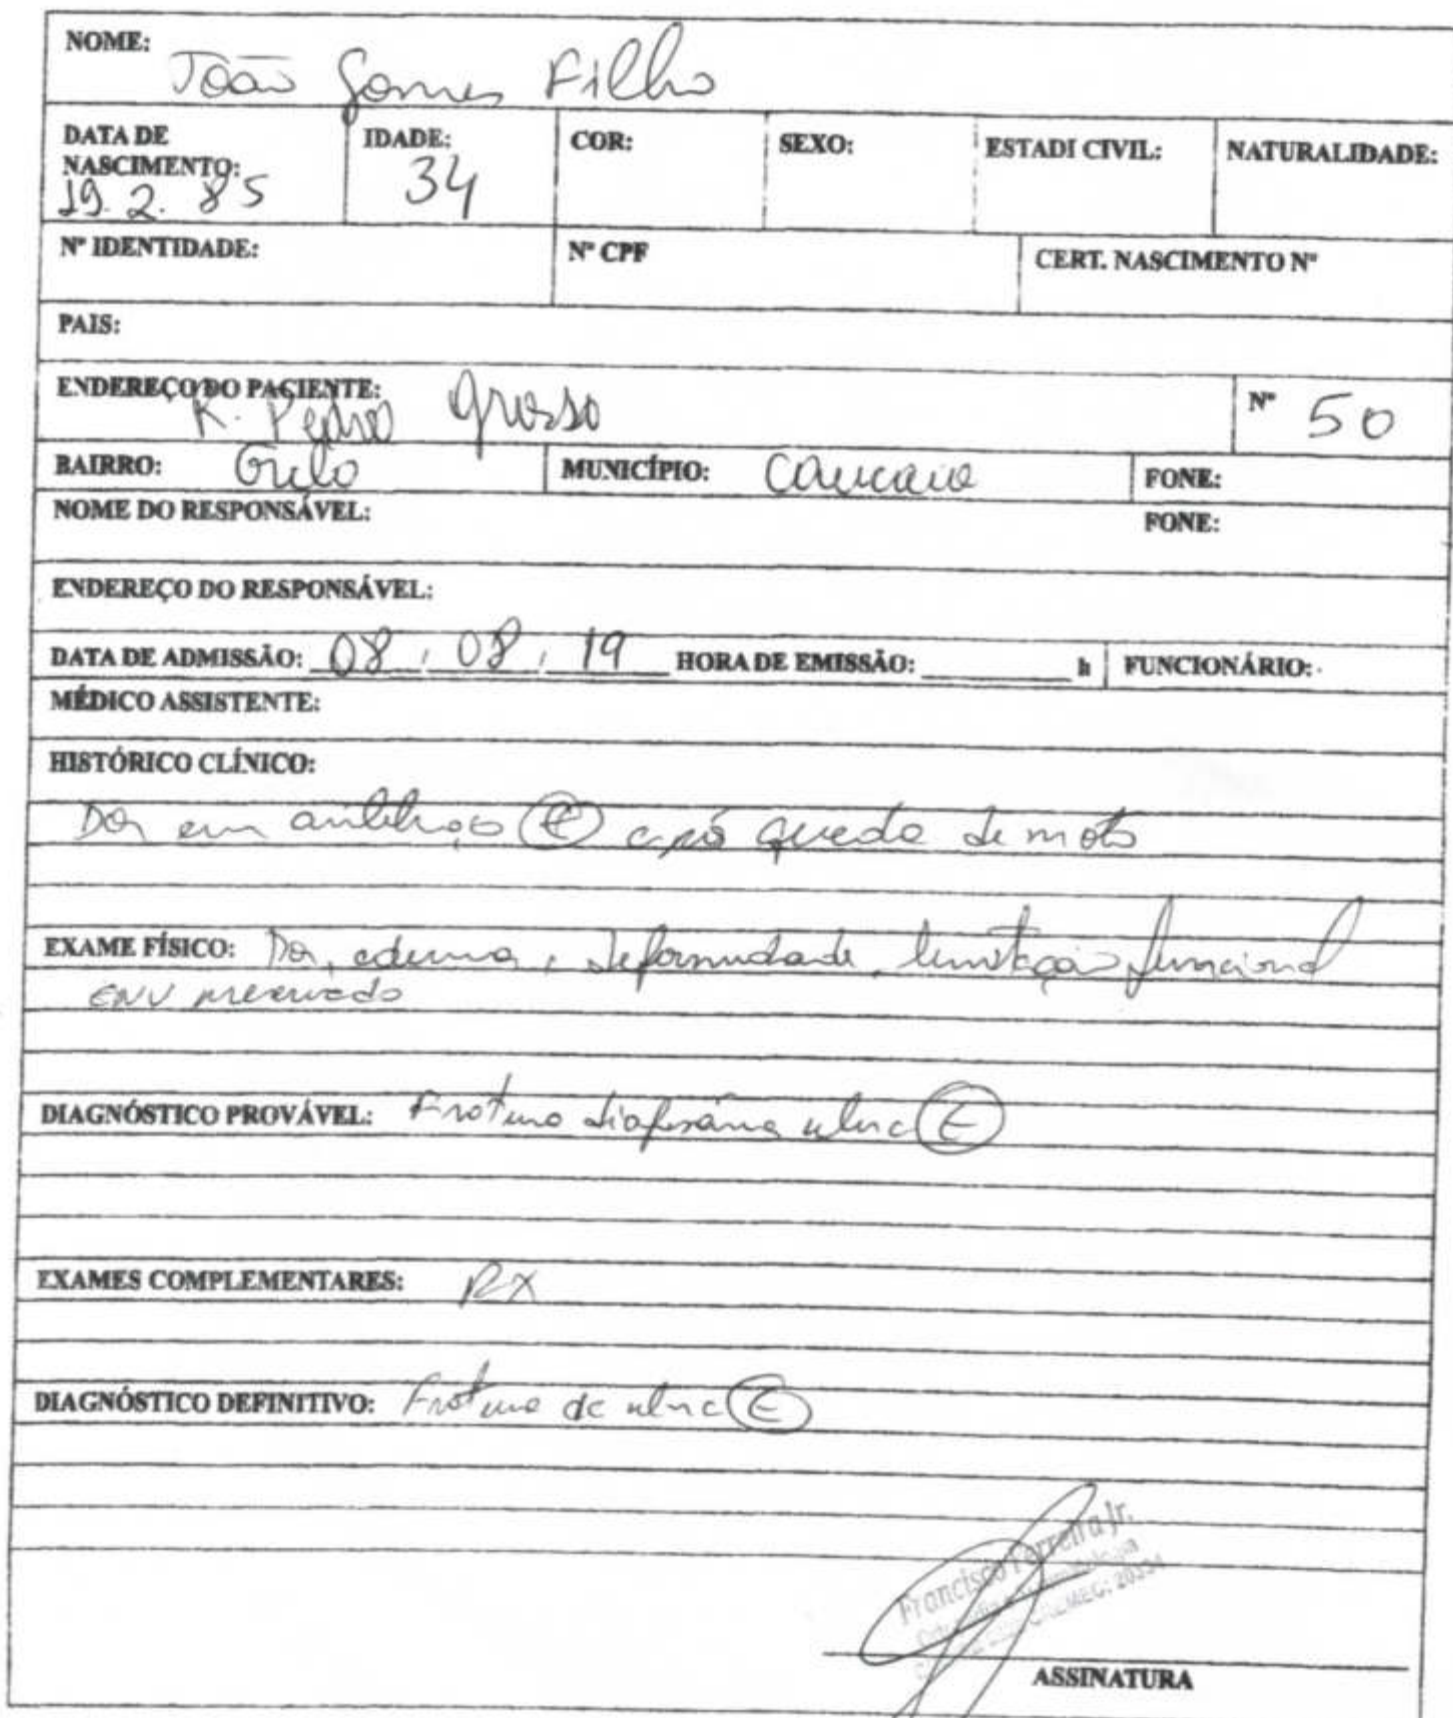 NOME: João Gomes Filho
DATA DE NASCIMENTO: 19.2.85 IDADE: 34 COR: SEXO: ESTADI CIVIL: NATURALIDADE:
Nº IDENTIDADE: Nº CPF CERT. NASCIMENTO Nº
PAIS:
ENDEREÇO DO PACIENTE: R. Pedro Grosso Nº 50
BAIRRO: Grilo MUNICÍPIO: Caucaia FONE:
NOME DO RESPONSÁVEL: FONE:
ENDEREÇO DO RESPONSÁVEL:
DATA DE ADMISSÃO: 08, 08, 19 HORA DE EMISSÃO: ______ h FUNCIONÁRIO:
MÉDICO ASSISTENTE:
HISTÓRICO CLÍNICO:
Dor em antebraço (E) após queda de moto
EXAME FÍSICO: Dor, edema, deformidade, limitação funcional
ENV preservado
DIAGNÓSTICO PROVÁVEL: Fratura diafisária ulna (E)
EXAMES COMPLEMENTARES: RX
DIAGNÓSTICO DEFINITIVO: Fratura de ulna (E)
Francisco Ferreira Jr.
CREMEC: 20334
ASSINATURA